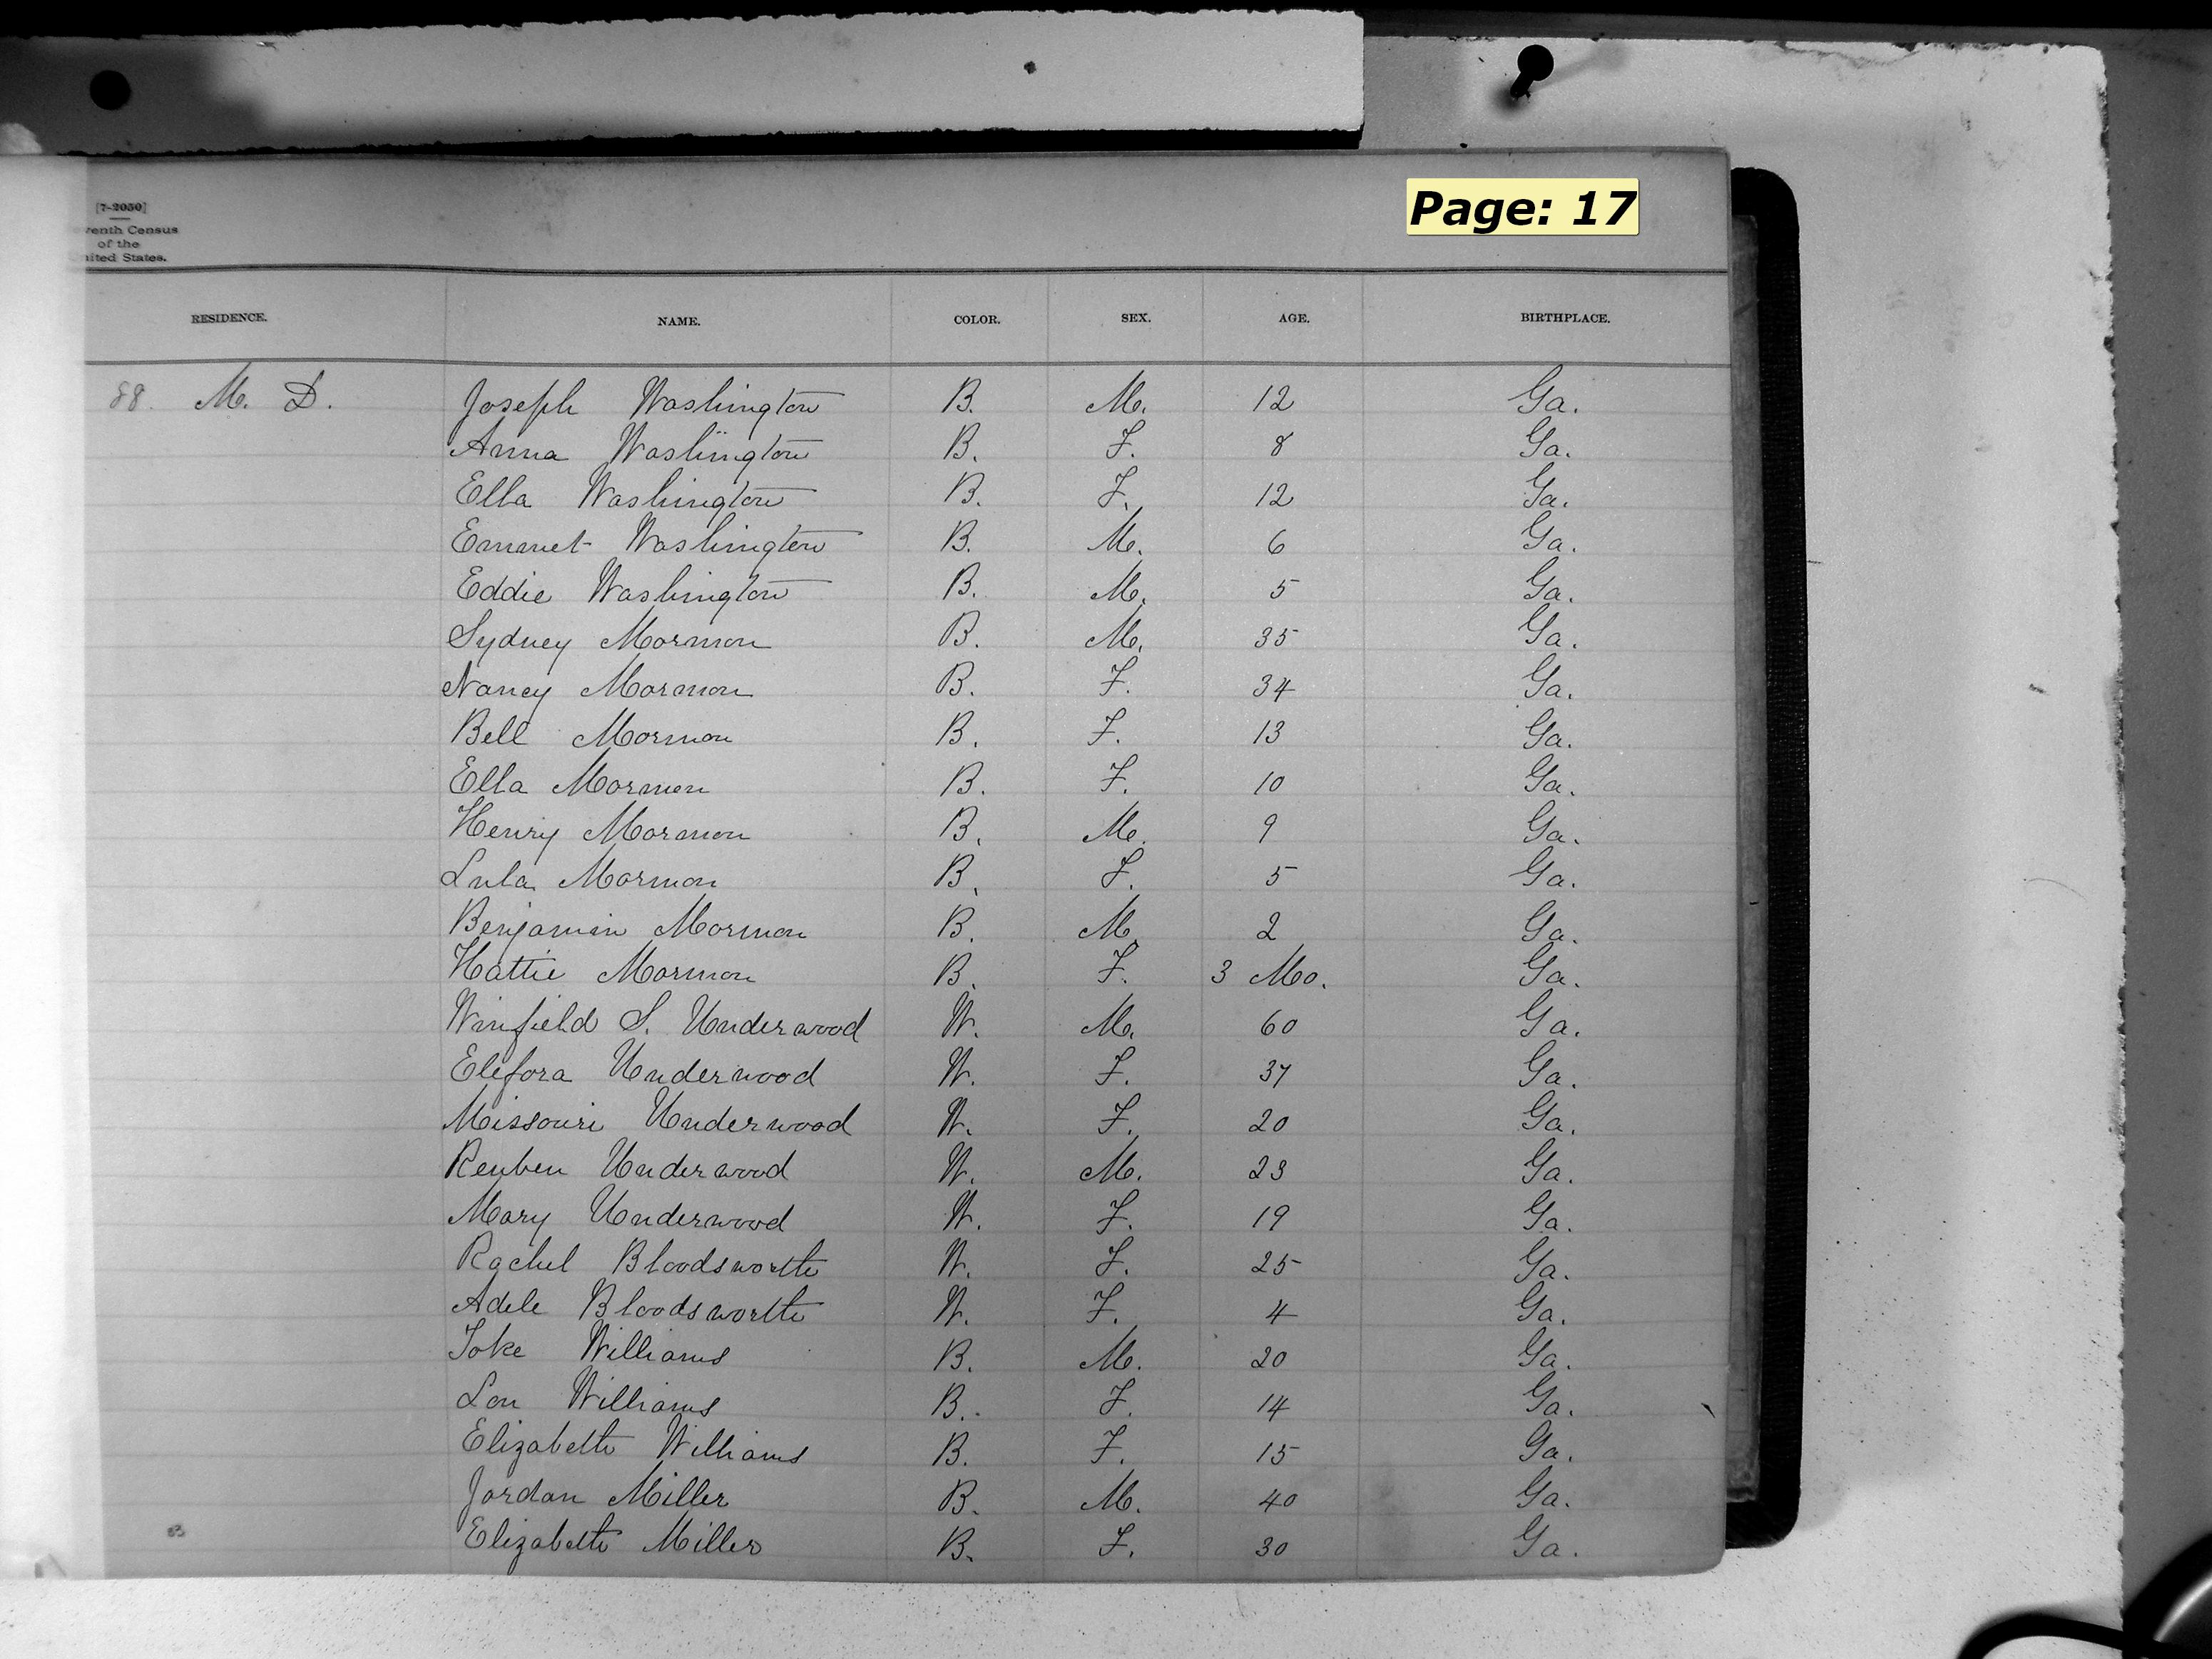 Page: 17
[7-2050]
venth Census
of the
nited States.
RESIDENCE. NAME. COLOR. SEX. AGE. BIRTHPLACE.
88. M. D. Joseph Washington B. M. 12 Ga.
Anna Washington B. F. 8 Ga.
Ella Washington B. F. 12 Ga.
Emmet Washington B. M. 6 Ga.
Eddie Washington B. M. 5 Ga.
Sydney Mormon B. M. 35 Ga.
Nancy Mormon B. F. 34 Ga.
Bell Mormon B. F. 13 Ga.
Ella Mormon B. F. 10 Ga.
Henry Mormon B. M. 9 Ga.
Lula Mormon B. F. 5 Ga.
Benjamin Mormon B. M. 2 Ga.
Hattie Mormon B. F. 3 Mo. Ga.
Winfield S. Underwood W. M. 60 Ga.
Elefora Underwood W. F. 37 Ga.
Missouri Underwood W. F. 20 Ga.
Reuben Underwood W. M. 23 Ga.
Mary Underwood W. F. 19 Ga.
Rachel Bloodsworth W. F. 25 Ga.
Adele Bloodsworth W. F. 4 Ga.
Joke Williams B. M. 20 Ga.
Lou Williams B. F. 14 Ga.
Elizabeth Williams B. F. 15 Ga.
Jordan Miller B. M. 40 Ga.
Elizabeth Miller B. F. 30 Ga.